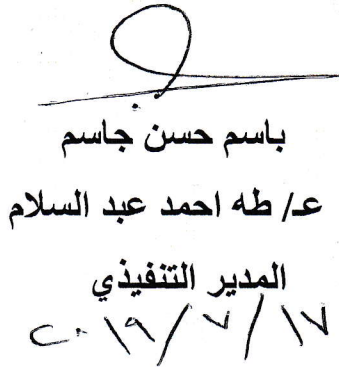 باسم حسن جاسم
عـ/ طه احمد عبد السلام
المدير التنفيذي
٢٠١٩/٧/١٧